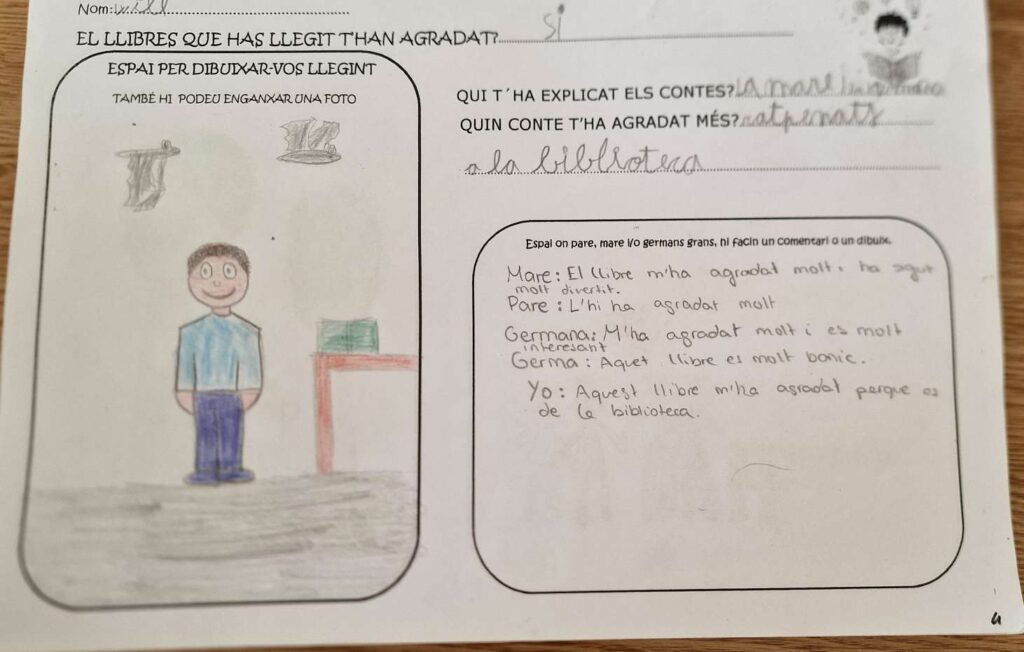 Nom: Will
EL LLIBRES QUE HAS LLEGIT T'HAN AGRADAT? SI
ESPAI PER DIBUIXAR-VOS LLEGINT
TAMBÉ HI PODEU ENGANXAR UNA FOTO
QUI T´HA EXPLICAT ELS CONTES? la mare
QUIN CONTE T'HA AGRADAT MÉS? ratpenats
a la biblioteca
Espai on pare, mare i/o germans grans, hi facin un comentari o un dibuix.
Mare: El llibre m'ha agradat molt i ha sgut
molt divertit.
Pare: L'hi ha agradat molt
Germana: M'ha agradat molt i es molt
interesant
Germa: Aquet llibre es molt bonic.
Yo: Aquest llibre m'ha agradat perque es
de la biblioteca.
4